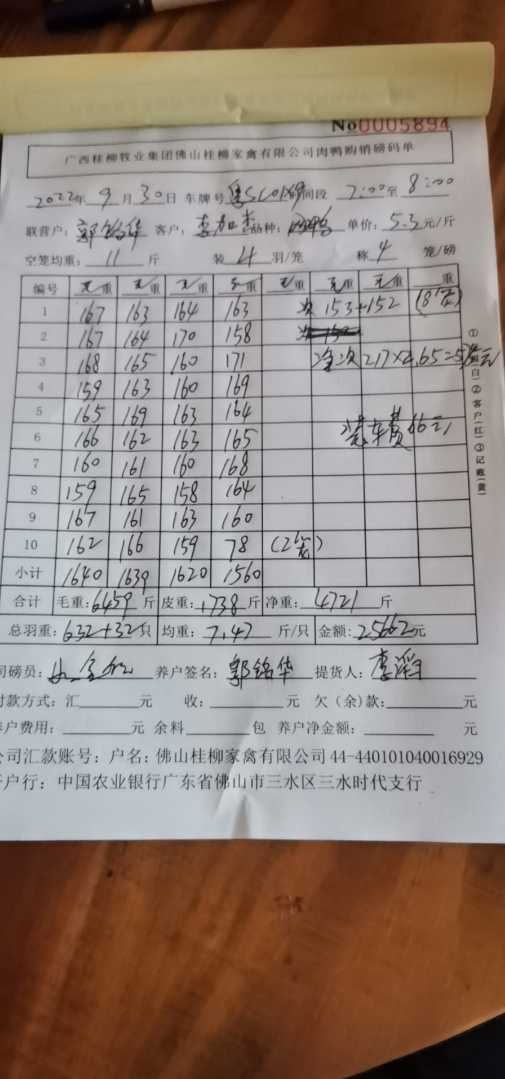 No0005894
广西桂柳牧业集团佛山桂柳家禽有限公司肉鸭购销磅码单
2022年 9 月 30 日 车牌号 时间段 7:00 至 8:00
联营户: 郭铭华 客户: 品种: 单价: 5.3 元/斤
空笼均重: 11 斤 装 4 羽/笼 称 4 笼/磅
编号 毛重 毛重 毛重 毛重 毛重 毛重 毛重 重
1 167 163 164 163 次 153+152 (8笼)
2 167 164 170 158 次
3 168 165 160 171 净次 217×2.65=
4 159 163 160 169
5 165 169 163 164
6 166 162 163 165 装车费66元
7 160 161 160 168
8 159 165 158 164
9 167 161 163 160
10 162 166 159 78 (2笼)
小计 1640 1639 1620 1560
合计 毛重: 6459 斤 皮重: 1738 斤 净重: 4721 斤
总羽重: 632+32 只 均重: 7.47 斤/只 金额: 25662 元
司磅员: 养户签名: 郭铭华 提货人: 李
付款方式: 汇 元 收: 元 欠(余)款: 元
养户费用: 元 余料 包 养户净金额: 元
公司汇款账号: 户名: 佛山桂柳家禽有限公司 44-440101040016929
开户行: 中国农业银行广东省佛山市三水区三水时代支行
②客户(红)③记账(黄)